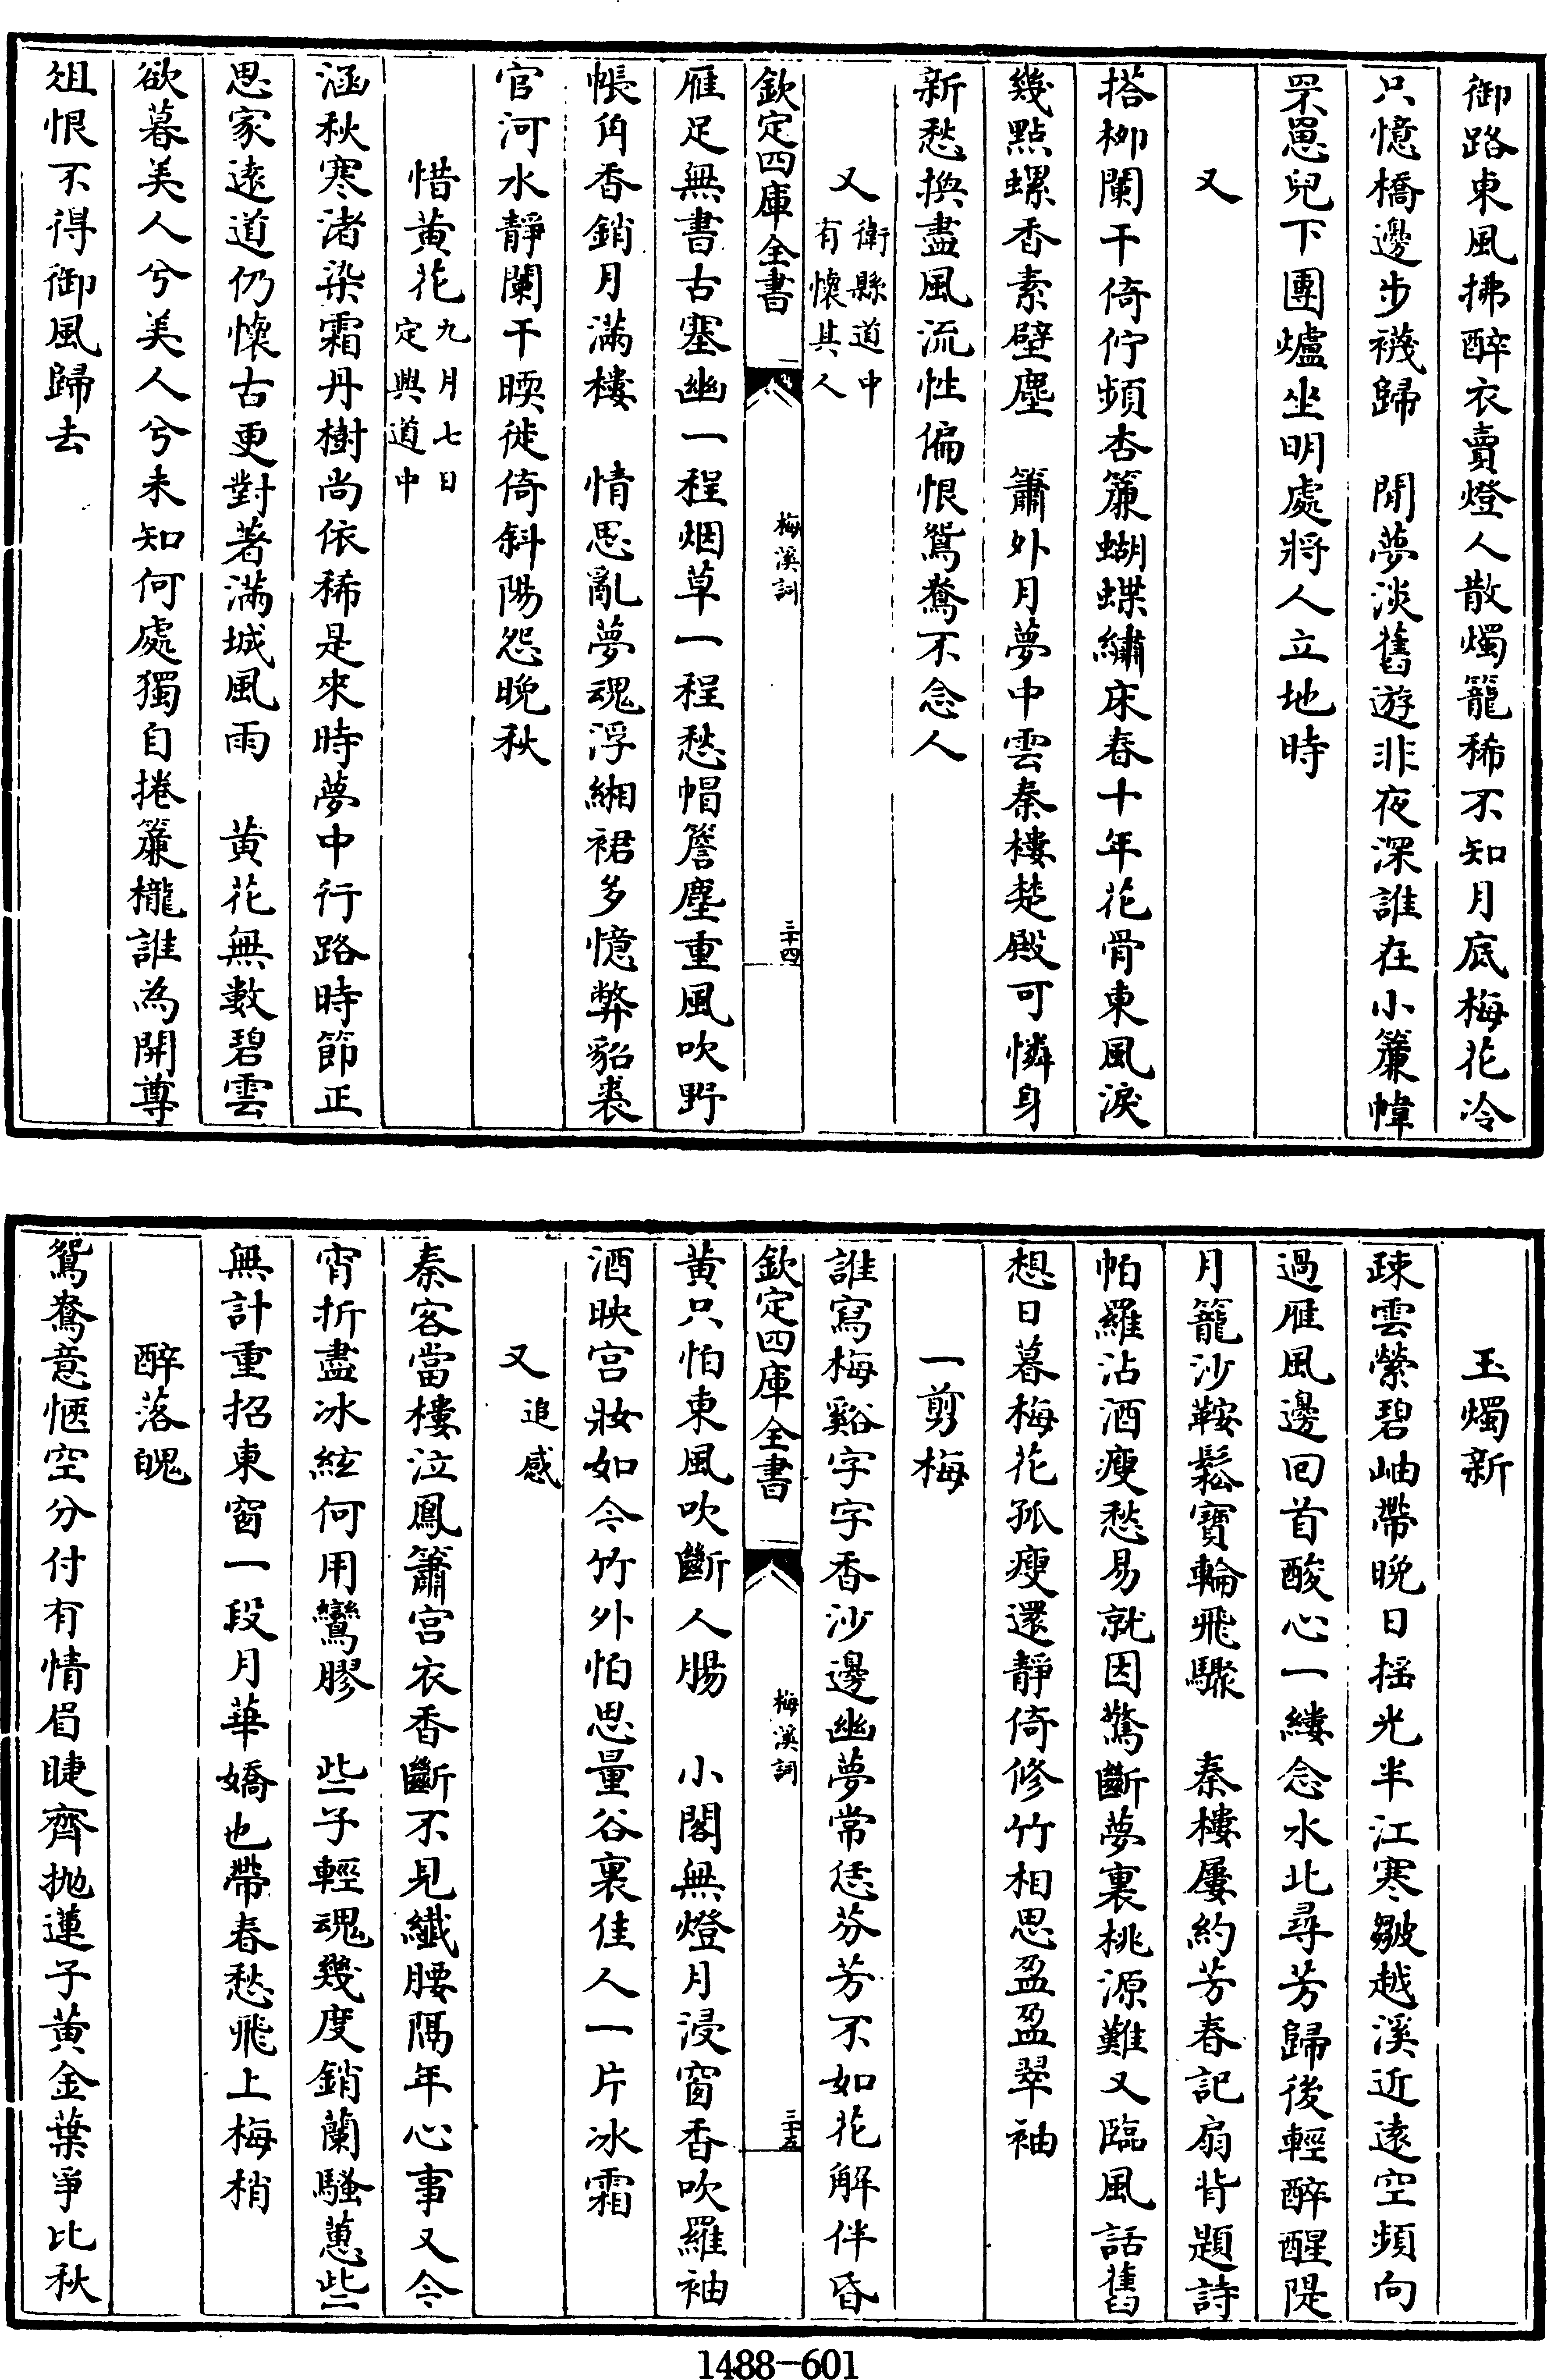 御路東風拂醉衣賣燈人散燭籠稀不知月底梅花冷
只憶橋邊步襪歸　閒夢淡舊遊非夜深誰在小簾幃
罘罳兒下團爐坐明處將人立地時
又
搭柳闌干倚佇頻杏簾蝴蝶繡床春十年花骨東風淚
幾點螺香素壁塵　簫外月夢中雲秦樓楚殿可憐身
新愁換盡風流性偏恨鴛鴦不念人
又衛縣道中有懷其人
欽定四庫全書
梅溪詞
三十四
雁足無書古塞幽一程烟草一程愁帽簷塵重風吹野
帳角香銷月滿樓　情思亂夢魂浮緗裙多憶弊貂裘
官河水靜闌干暝徙倚斜陽怨晚秋
惜黃花九月七日定興道中
涵秋寒渚染霜丹樹尚依稀是來時夢中行路時節正
思家遠道仍懷古更對著滿城風雨　黃花無數碧雲
欲暮美人兮美人兮未知何處獨自捲簾櫳誰為開尊
俎恨不得御風歸去
玉燭新
疎雲縈碧岫帶晚日揺光半江寒皺越溪近遠空頻向
過雁風邊回首酸心一縷念水北尋芳歸後輕醉醒隄
月籠沙鞍鬆寶輪飛驟　秦樓屢約芳春記扇背題詩
帕羅沾酒瘦愁易就因驚斷夢裏桃源難又臨風話舊
想日暮梅花孤瘦還靜倚修竹相思盈盈翠袖
一剪梅
誰寫梅谿字字香沙邊幽夢常恁芬芳不如花解伴昏
欽定四庫全書
梅溪詞
三十五
黃只怕東風吹斷人腸　小閣無燈月浸窗香吹羅袖
酒映宮妝如今竹外怕思量谷裏佳人一片冰霜
又追感
秦客當樓泣鳳簫宮衣香斷不見纖腰隔年心事又今
宵折盡冰絃何用鸞膠　些子輕魂幾度銷蘭騷蕙些
無計重招東窗一段月華嬌也帶春愁飛上梅梢
醉落魄
鴛鴦意愜空分付有情眉睫齊抛蓮子黃金葉爭比秋
1488—601